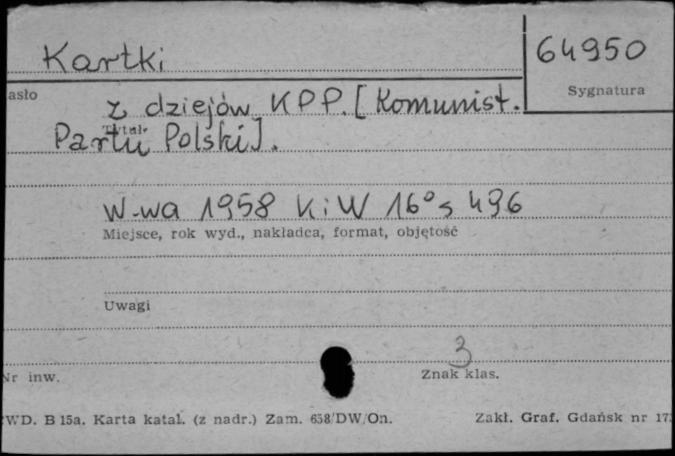 Kartki
64950
asło
Sygnatura
z dziejów KPP. [Komunist.
Tytuł
Partii Polski].
W-wa 1958 KiW 16° s 496
Miejsce, rok wyd., nakładca, format, objętość
Uwagi
3
Nr inw.
Znak klas.
WD. B 15a. Karta katal. (z nadr.) Zam. 658/DW/On.
Zakł. Graf. Gdańsk nr 17